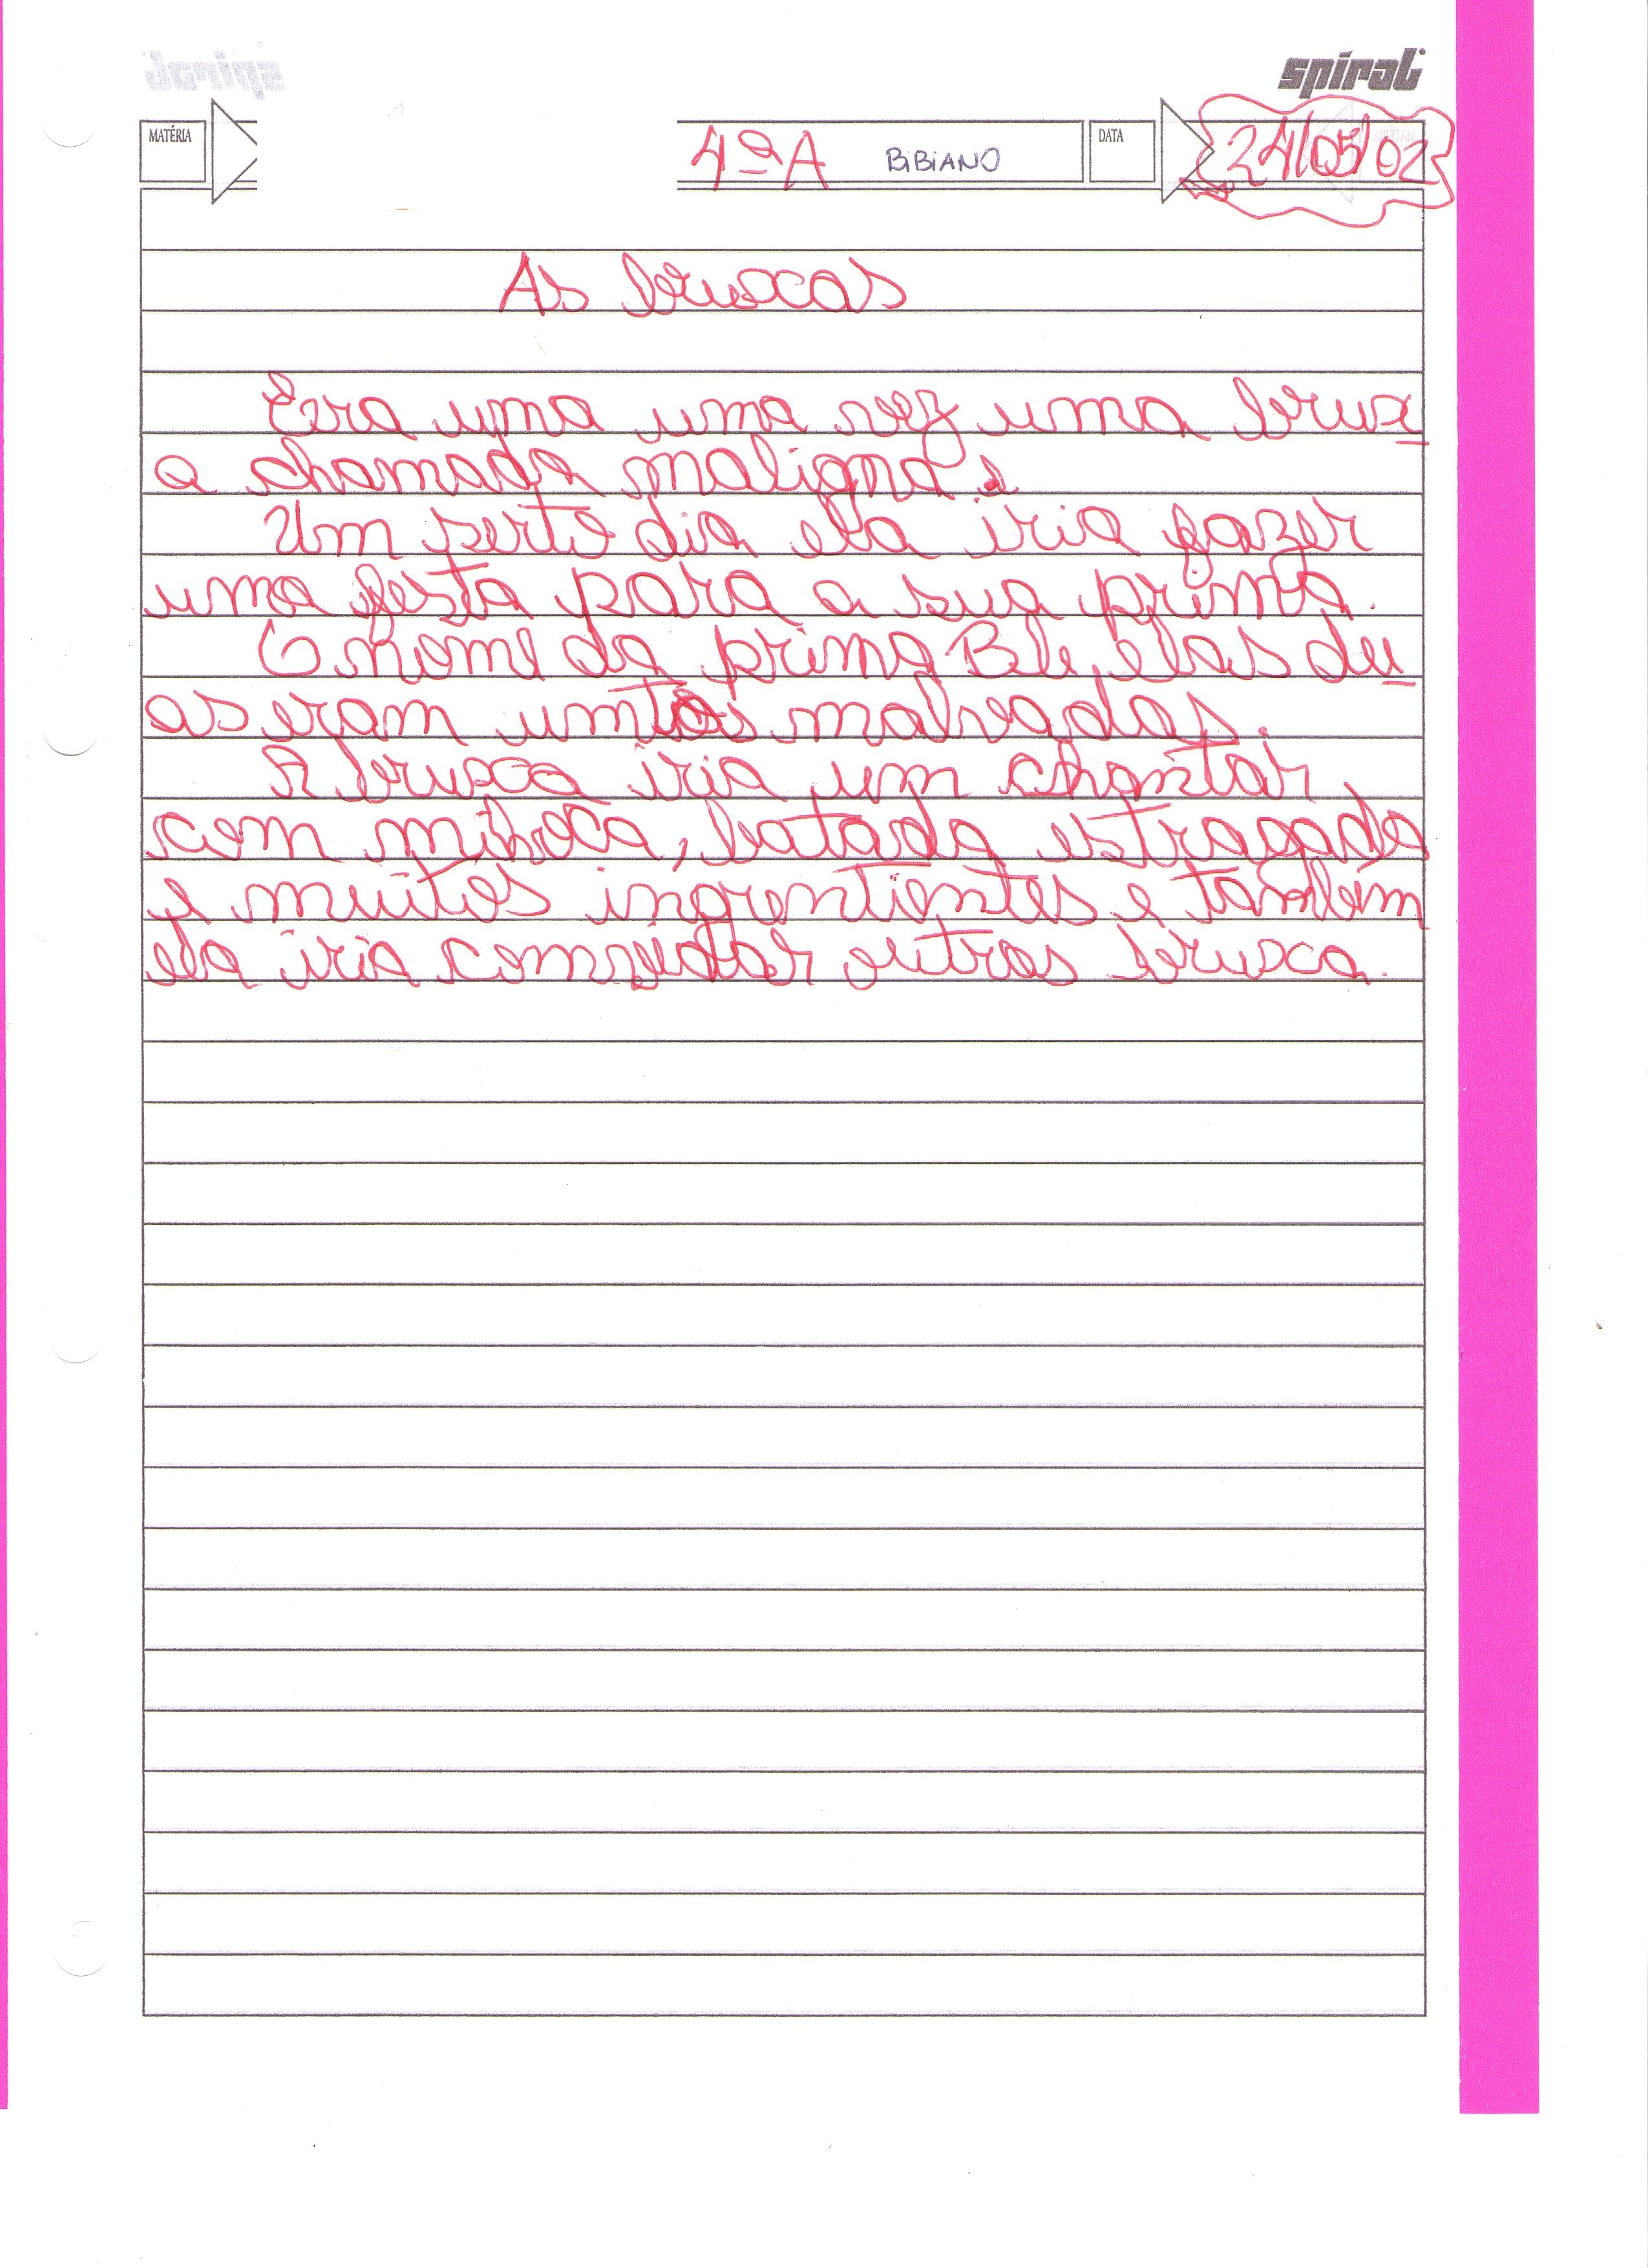 spiral
MATÉRIA 4ª A BiBiANO DATA 24/05/02
As bruxas
Era uma uma vez uma brux
a chamada maligna.
Um serto dia ela iria fazer
uma festa para a sua prima.
O nome da prima Bele, elas du
as eram umtos malvadas.
A bruxa iria um chantar
com mihoca, batada estragada
e muitos ingrentientes e também
ela iria comvidar outras bruxa.